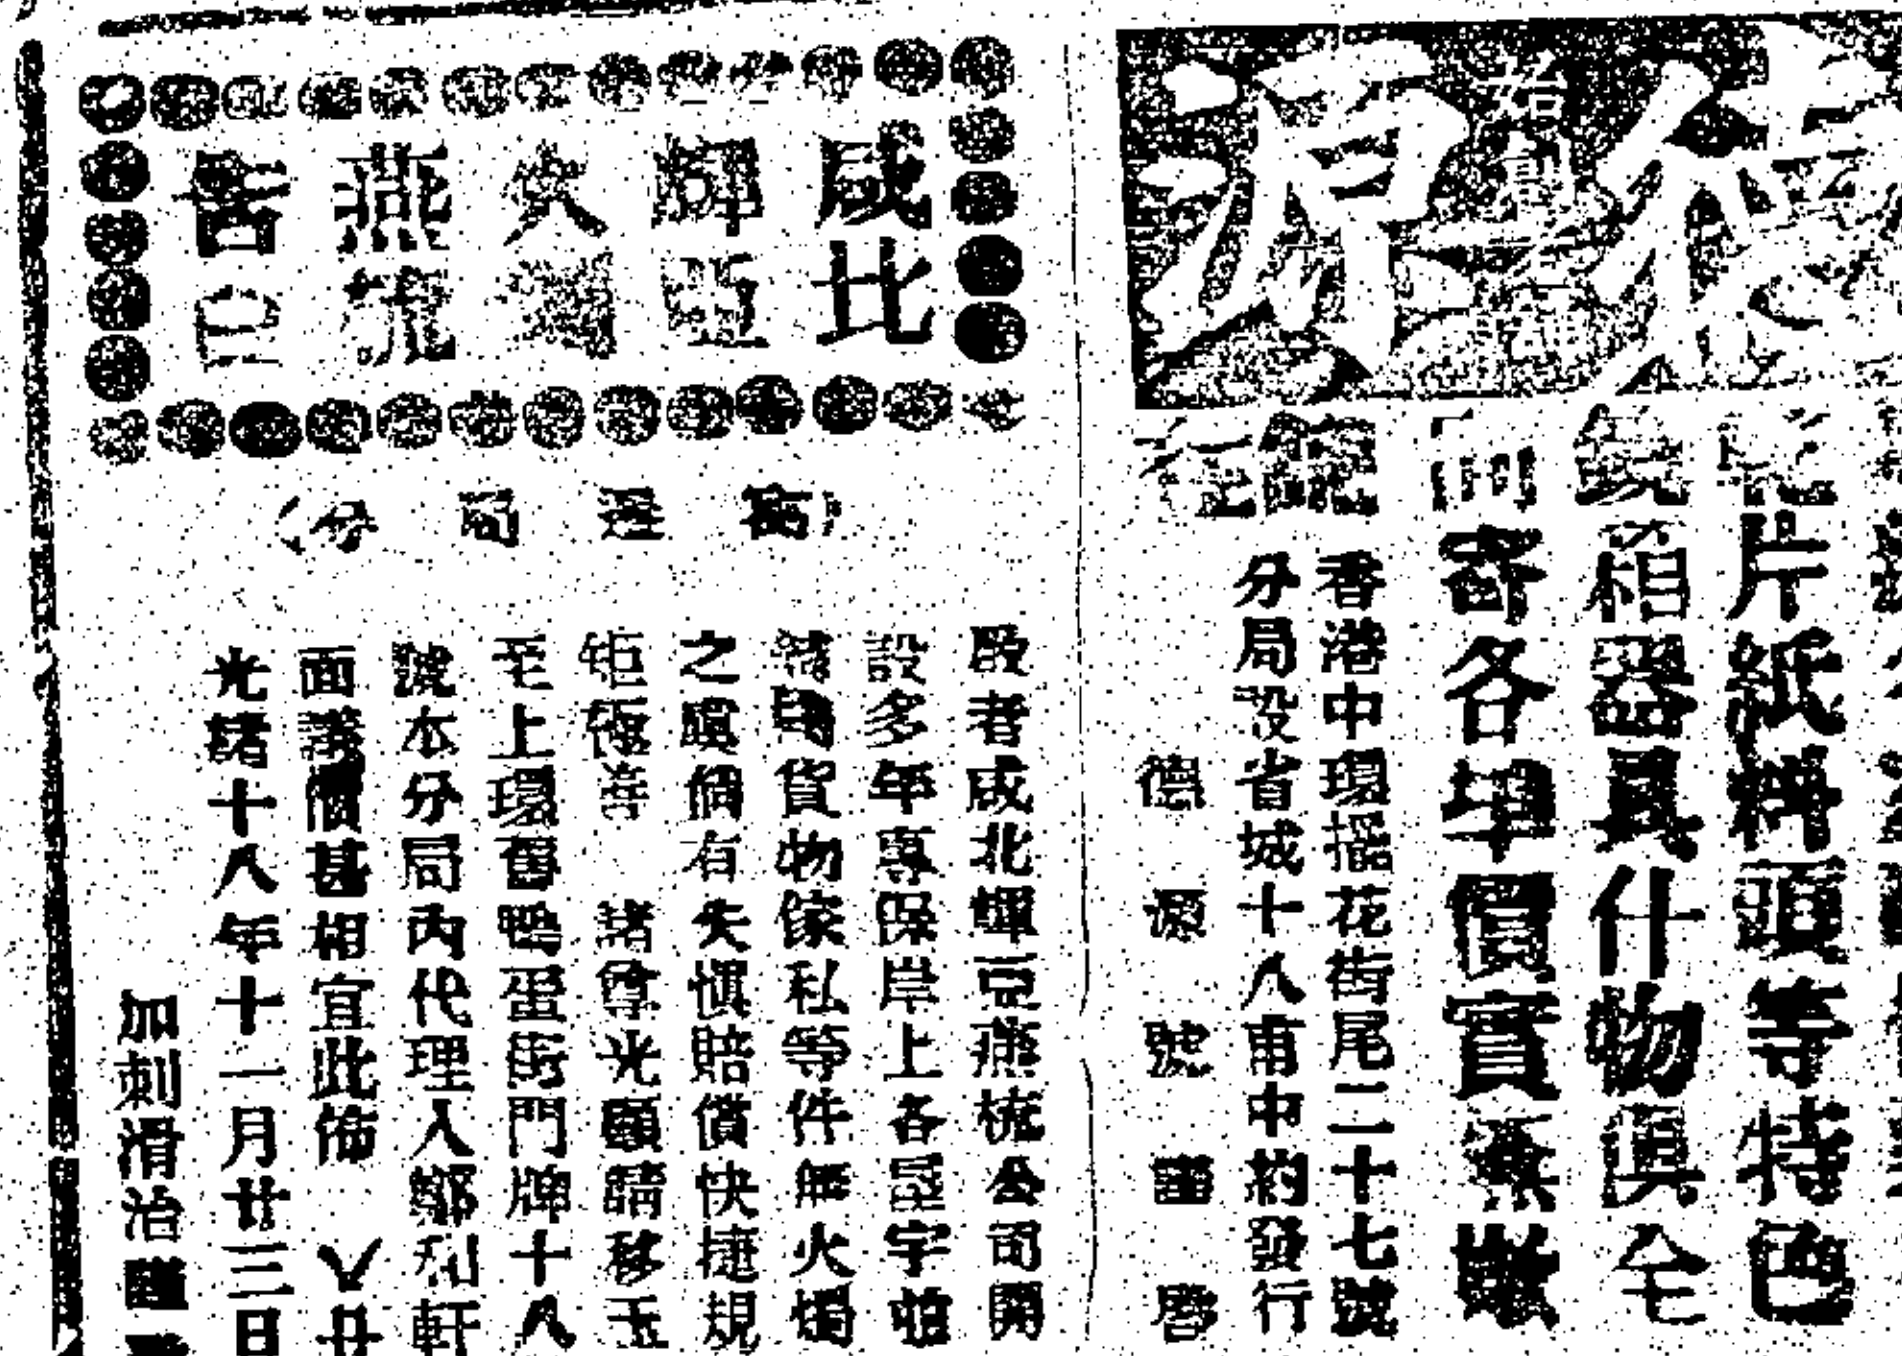 德源
片紙料頭等特色
鏡箱器具什物俱全
寄各埠價實無欺
香港中環擺花街尾二十七號
分局設省城十八甫中約發行
德源號謹啓
咸北
輝亞
火燭
燕梳
告白
分局
啟者咸北輝亞燕梳公司開
設多年專保岸上各屋宇並
舖貨物傢私等件無火燭
之虞倘有失慎賠償快捷規
矩極善 諸尊光顧請移玉
至上環舊鴨蛋街門牌十八
號本分局內代理人鄭利軒
面議價甚相宜此佈
光緒十八年十一月廿三日
加刺滑治謹